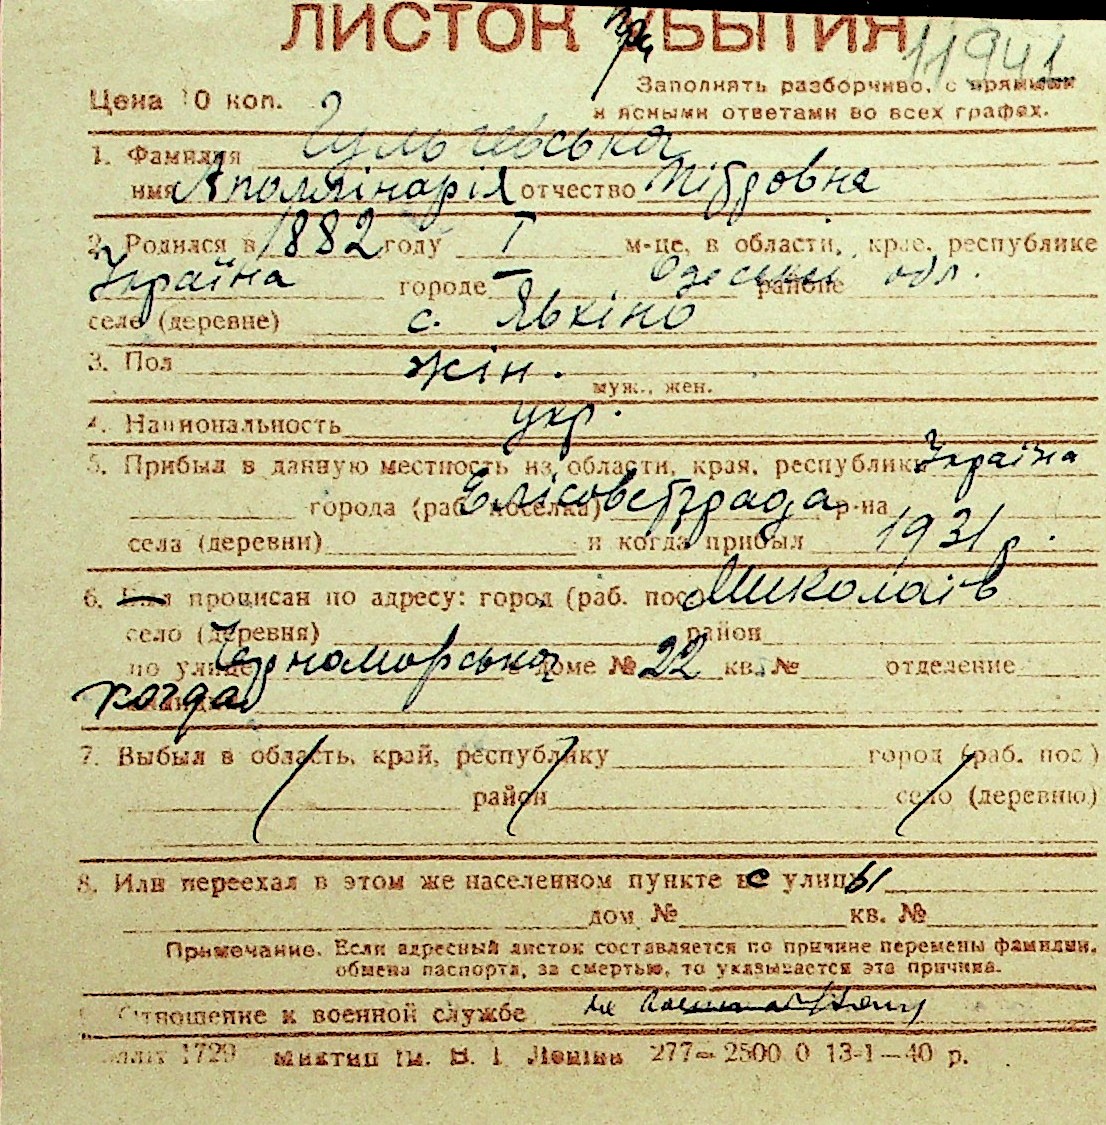 ЛИСТОК УБЫТИЯ
11941
Цена 10 коп.
Заполнять разборчиво, с прямыми
и ясными ответами во всех графах.
1. Фамилия Гульчевська
имя Аполлінарія отчество Пітровна
2. Родился в 1882 году I м-це, в области, крае, республике
Україна городе — Одеський районе обл.
селе (деревне) с. Явкіно
3. Пол жін. муж., жен.
4. Национальность укр.
5. Прибыл в данную местность из области, края, республики Україна
города (раб. поселка) Єлісоветграда р-на
села (деревни) и когда прибыл 1931 р.
6. Был прописан по адресу: город (раб. пос.) Миколаїв
село (деревня) район
по улице Чорноморська доме № 22 кв. № отделение
когда
7. Выбыл в область, край, республику город (раб. пос.)
район село (деревню)
8. Или переехал в этом же населенном пункте с улицы
дом № кв. №
Примечание. Если адресный листок составляется по причине перемены фамилии,
обмена паспорта, за смертью, то указывается эта причина.
Отношение к военной службе не
1729 им. В. І. Леніна 277—2500.0 13-1—40 р.